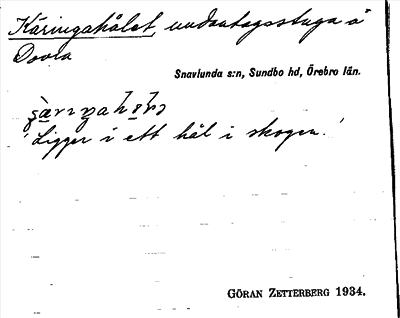 Käringahålet, undantagsstuga å
Dovra
Snavlunda s:n, Sundbo hd, Örebro län.
'Ligger i ett hål i skogen.'
GÖRAN ZETTERBERG 1934.